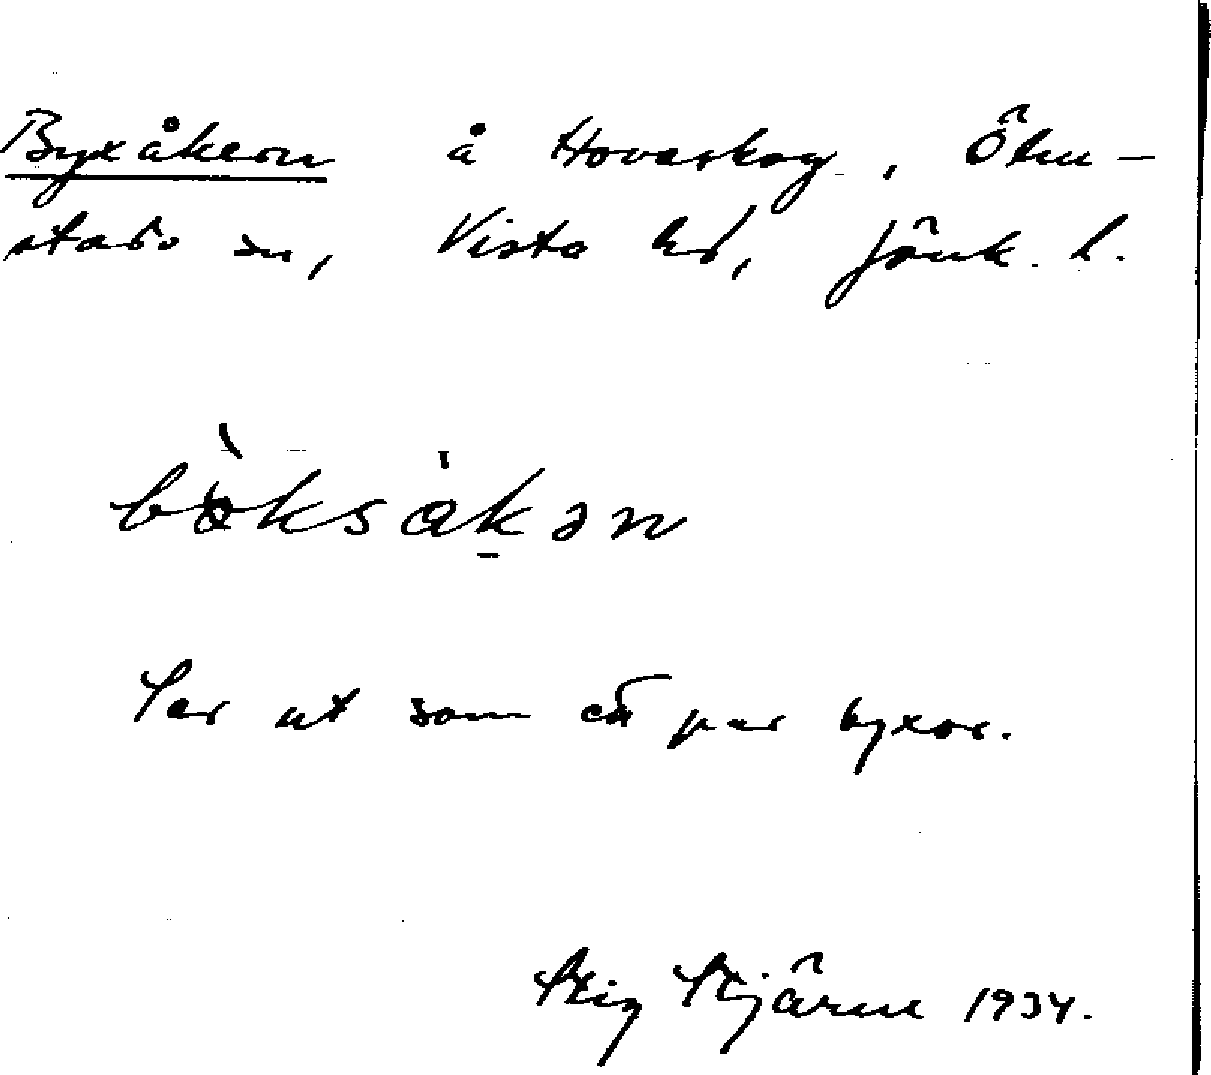 Byxåkern å Hovaskog, Ölm-
stads sn, Vista hd, Jönk. l.
bö̀ksåkən
Ser ut som ett par byxor.
Stig Stjärne 1934.